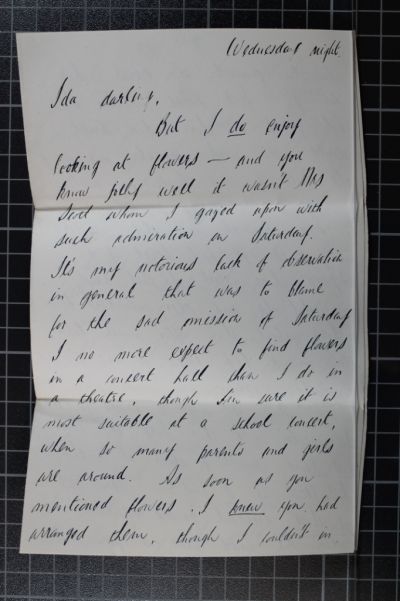 Wednesday night.
Ida darling,
But I do enjoy
looking at flowers – and you
know jolly well it wasn't Mrs
whom I gazed upon with
such admiration on Saturday.
It's my notorious lack of observation
in general that was to blame
for the sad omission of Saturday
I no more expect to find flowers
in a concert hall than I do in
a theatre, though I'm sure it is
most suitable at a school concert,
when so many parents and girls
are around. As soon as you
mentioned flowers, I knew you had
arranged them, though I couldn't in